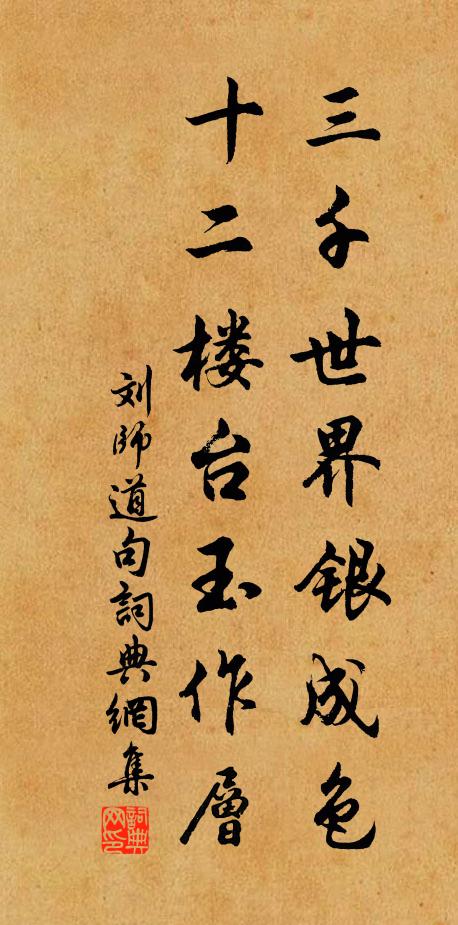 三千世界银成色
十二楼台玉作層
刘師道句詞典網集
詞典网印